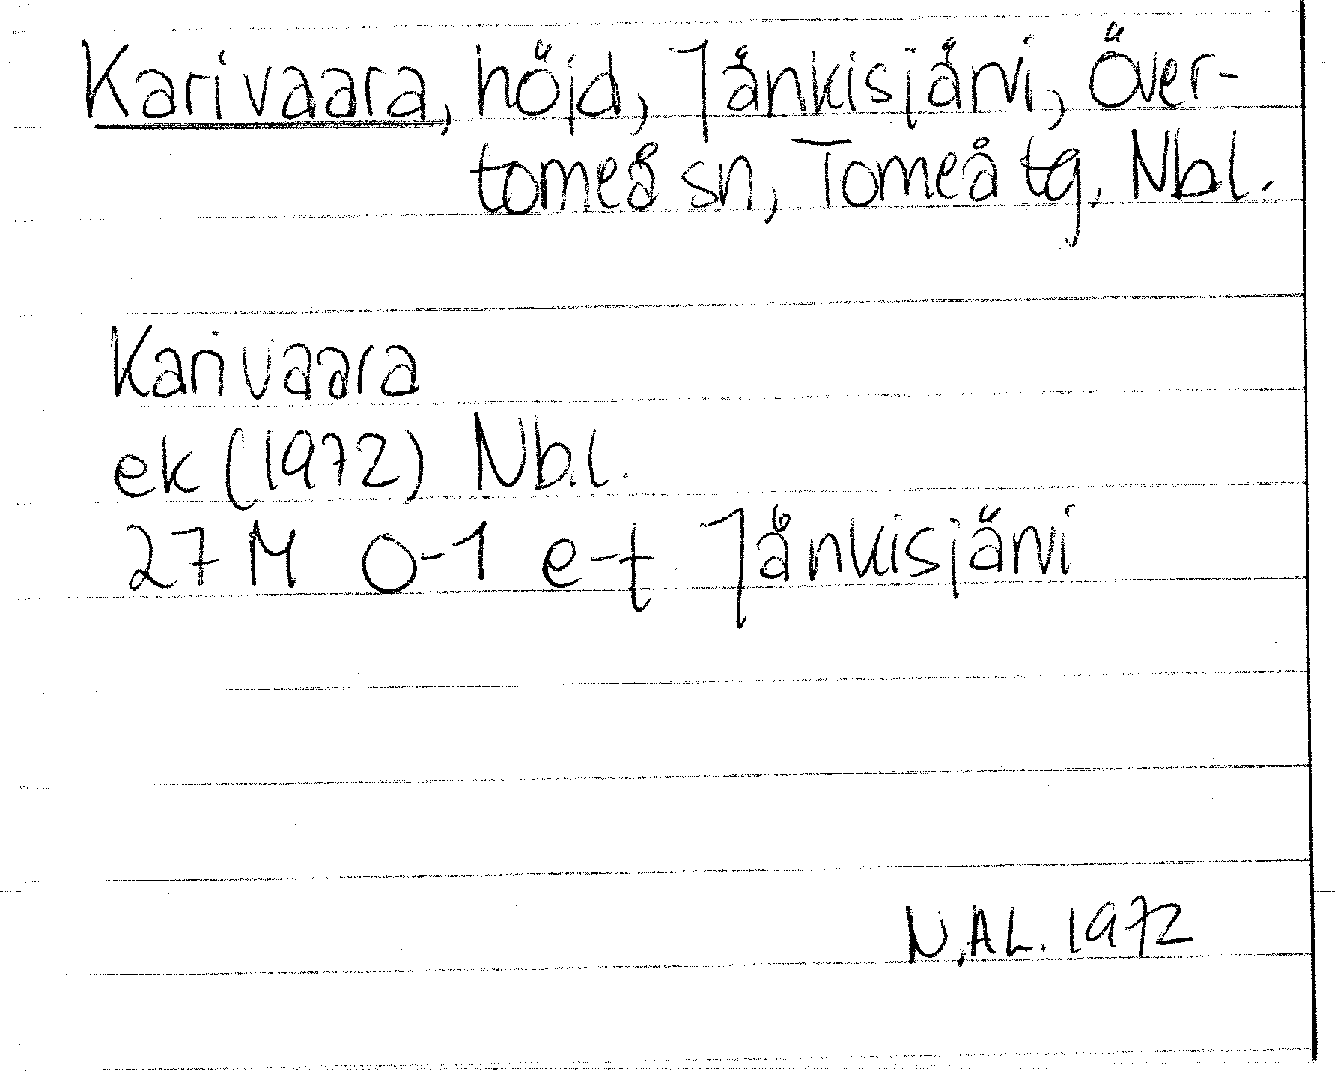 Karivaara, höjd, Jänkisjärvi, Över-
torneå sn, Torneå tg, Nbl.
Karivaara
ek (1972) Nbl.
27 M 0-1 e-f Jänkisjärvi
N.AL. 1972